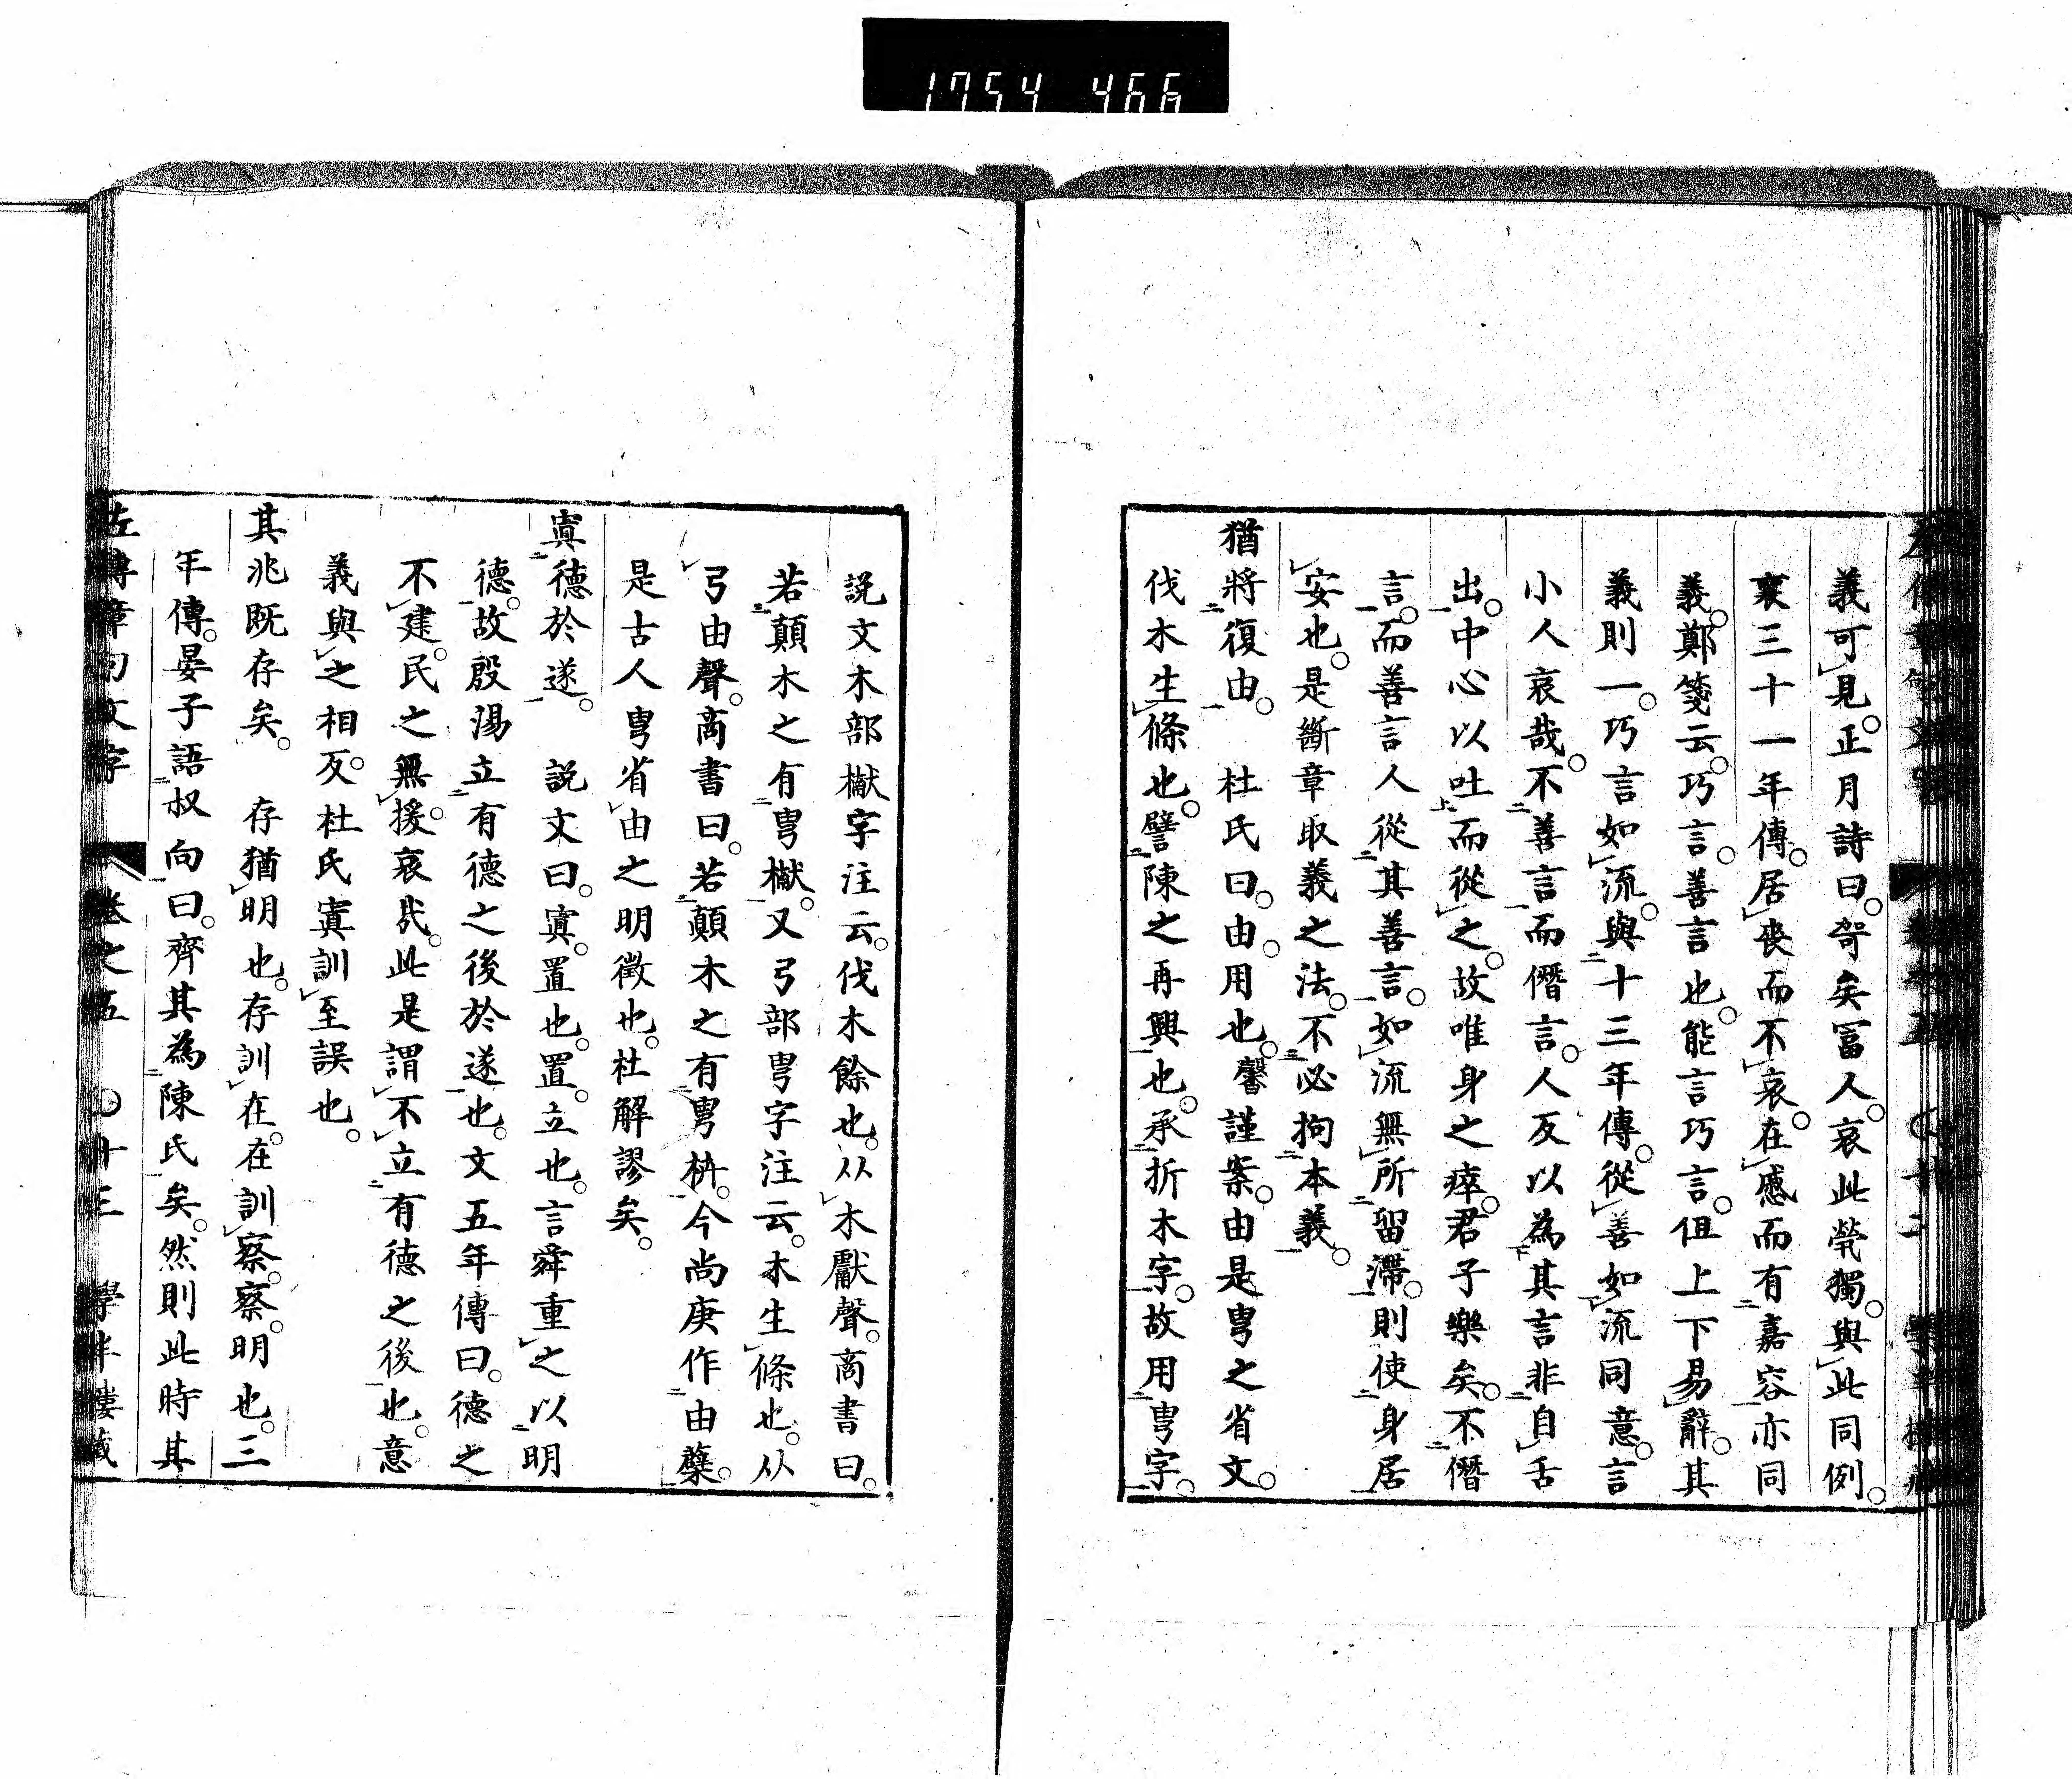 1754 466
義可見。正月詩曰。哿矣冨人。哀此煢獨。與此同例。
襄三十一年傳。居喪而不哀。在慼而有嘉容亦同
義。鄭箋云。巧言。善言也。能言巧言。但上下易辭。其
義則一。巧言如流。與十三年傳。從善如流同意。言
小人哀哉。不善言而僭言。人反以為其言非自舌
出。中心以吐而從之。故唯身之瘁。君子樂矣。不僭
言。而善言人從其善言。如流無所留滯。則使身居
安也。是斷章取義之法。不必拘本義。
猶將復由。　杜氏曰。由。用也。馨謹案。由是甹之省文。
伐木生條也。譬陳之再興也。承折木字。故用甹字。
説文木部櫱字注云。伐木餘也。从木獻聲。商書曰。
若顛木之有甹櫱。又弓部甹字注云。木生條也。从
弓由聲。商書曰。若顛木之有甹枿。今尚庚作由蘖。
是古人甹省由之明徵也。杜解謬矣。
寘德於遂。　説文曰。寘。置也。置。立也。言舜重之以明
德。故殷湯立有德之後於遂也。文五年傳曰。德之
不建。民之無援。哀哉。此是謂不立有德之後也。意
義與之相反。杜氏寘訓至誤也。
其兆既存矣。　存猶明也。存訓在。在訓察。察。明也。三
年傳。晏子語叔向曰。齊其為陳氏矣。然則此時其
左傳章句文字　卷之五　〇十三　學半樓藏